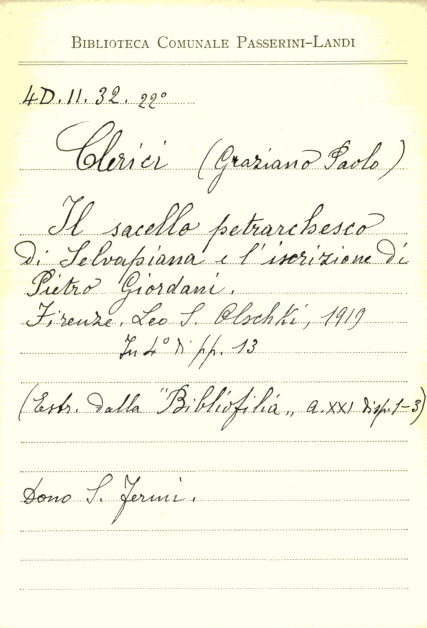 BIBLIOTECA COMUNALE PASSERINI-LANDI
4D. II. 32. 22º
Clerici (Graziano Paolo)
Il sacello petrarchesco
di Selvapiana e l'iscrizione di
Pietro Giordani.
Firenze. Leo S. Olschki, 1919
In 4º di pp. 13
(Estr. dalla "Bibliofilia„ a. XXI disp. 1-3)
Dono S. Fermi.